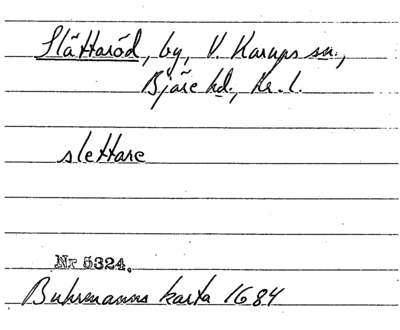 Slättaröd, by, V. Karups sn.,
Bjäre hd., Kr. l.
slettare
Nr 5324.
Buhrmanns karta 1684